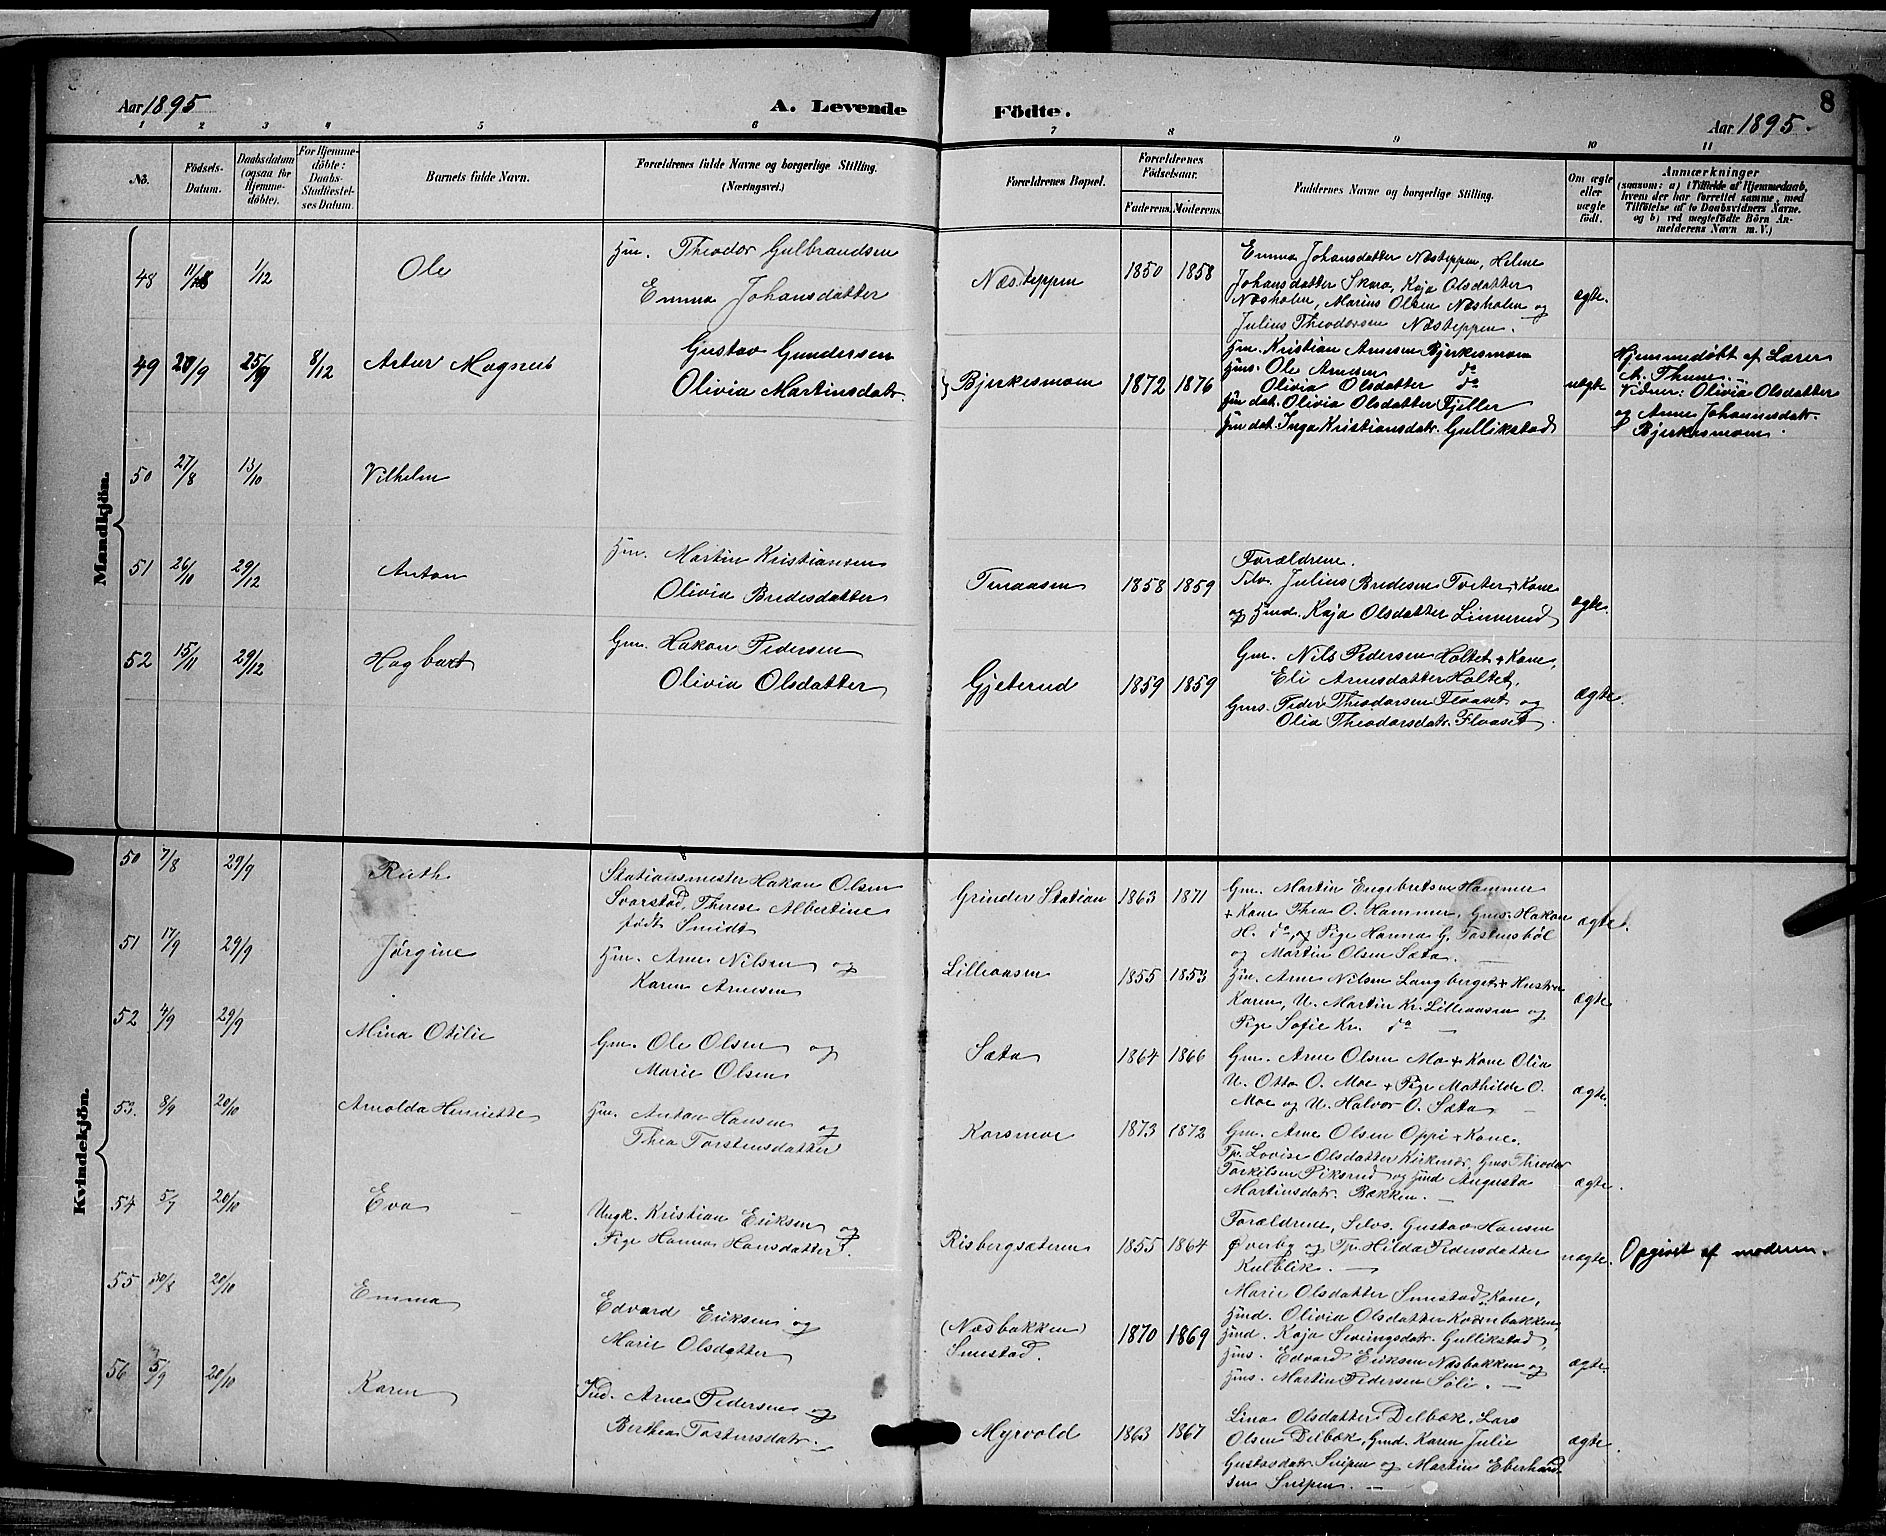 8
Aar 1895
A. Levende
Födte.
Aar 1895.
1 2 3 4 5 6 7 8 9 10 11
No.
Födsels-
Datum.
Daabsdatum
(ogsaa for
Hjemme-
döbte).
For Hjemme-
döbte:
Daabs-
Stadfæstel-
ses Datum.
Barnets fulde Navn.
Forældrenes fulde Navne og borgerlige Stilling.
(Næringsvei.)
Forældrenes Bopæl.
Forældrenes
Födselsaar.
Faderens. Moderens.
Faddernes Navne og borgerlige Stilling.
Om ægte
eller
uægte
födt.
Anmærkninger
(saasom: a) i Tilfælde af Hjemmedaab,
hvem der har forrettet samme, med
Tilföielse af to Daabsvidners Navne,
og b) ved uægtefödte Börn An-
melderens Navn m. V.)
Mandkjön.
48 1/12 Ole
Hm. Theodor Gulbrandsen
Emma Johansdatter
Næsteppen 1850 1858
Emma Johansdatter Næsteppen, Helene
Johansdatter Skara, Kaja Olsdatter
Næsholm, Marius Olsen Næsholm og
Julius Theodorsen Næsteppen.
ægte.
49 20/9 25/9 8/12 Artur Magnus
Gustav Gundersen
Olivia Martinsdatr.
Bjerkesmoen 1872 1876
Hm. Kristian Arnesen Bjerkesmoen
Hms. Ole Arnesen do
Olivia Olsdatter do
Hm dat. Olivia Olsdatter Fjeller
Hm dat. Inga Kristiansdatr. Gullikstad
uægte
Hjemmedøbt af Lærer
A. Thune.
Vidner: Olivia Olsdatter
og Anne Johannesdatr.
Bjerkesmoen.
50 27/8 13/10 Vilhelm
51 26/10 29/12 Anton
Hm. Martin Kristiansen
Olivia Bredesdatter
Tenaasen 1858 1859
Forældrene.
Selv. Julius Bredesen Torter + Kone
og Hmd. Kaja Olsdatter Linnerud
ægte.
52 15/11 29/12 Hagbart
Gm. Hakon Pedersen
Olivia Olsdatter
Gjeterud 1859 1859
Gm. Nils Pedersen Holtet + Kone,
Eli Arnesdatter Holtet,
Gms. Peder Theodorsen Floaset og
Olia Theodorsdatr. Floaset.
ægte.
Kvindekjön.
50 7/8 29/9 Ruth
Stationsmester Hakon Olsen
Svarstad, Therese Albertine
født Smidt
Grinder Station 1863 1871
Gm. Martin Engebretsen Hammer
+ Kone Thea O. Hammer, Gms. Hakon
H. do, og Pige Hanna G. Tostensböl
og Martin Olsen Sæta.
ægte.
51 17/9 29/9 Jørgine
Hm. Arne Nilsen og
Karen Arnesen
Lilleaasen 1855 1853
Hm. Arne Nilsen Langberget + Hustru
Karen, U. Martin Kr. Lilleaasen og
Pige Sofie Kr. do
ægte
52 4/9 29/9 Mina Otilie
Gm. Ole Olsen og
Marie Olsen
Sæta 1864 1866
Gm. Arne Olsen Mo + Kone Olia
U. Otto O. Moe + Pige Mathilde O.
Moe og U. Halvor O. Sæta
ægte.
53. 8/9 20/10 Arnolda Henriette
Hm. Anton Hansen og
Thea Torstensdatter
Korsmoe 1873 1872
Gm. Arne Olsen Oppi + Kone.
Tp. Lovise Olsdatter Kirkenær, Gms. Theodor
Torkilsen Piksrud og Hmd Augusta
Martinsdatr. Bakken.
ægte.
54 5/7 20/10 Eva
Ungk. Kristian Eriksen og
Pige Hanna Hansdatter
Risbergsæteren 1855 1864
Forældrene, Selvs. Gustav Hansen
Øverby og Tp. Hilda Pedersdatter
Kulblik.
uægte.
Opgivet af moderen.
55. 30/8 20/10 Emma
Edvard Eriksen og
Marie Olsdatter
(Næsbakken)
Smestad. 1870 1869
Marie Olsdatter Smestad, Kone,
Hmd. Olivia Olsdatter Kodenbakken,
Hmd. Kaja Severingsdatr. Gullikstad,
Hms. Edvard Eriksen Næsbakken og
Hms. Martin Pedersen Söli.
ægte.
56 5/9 20/10 Karen
Ind. Arne Pedersen og
Berthea Tostensdatr.
Myrvold 1863 1867
Lina Olsdatter Delbæk, Lars
Olsen Delbæk, Gmd. Karen Julie
Gustavsdatr. Snipen og Martin Eberhard-
sen Snipen.
ægte.